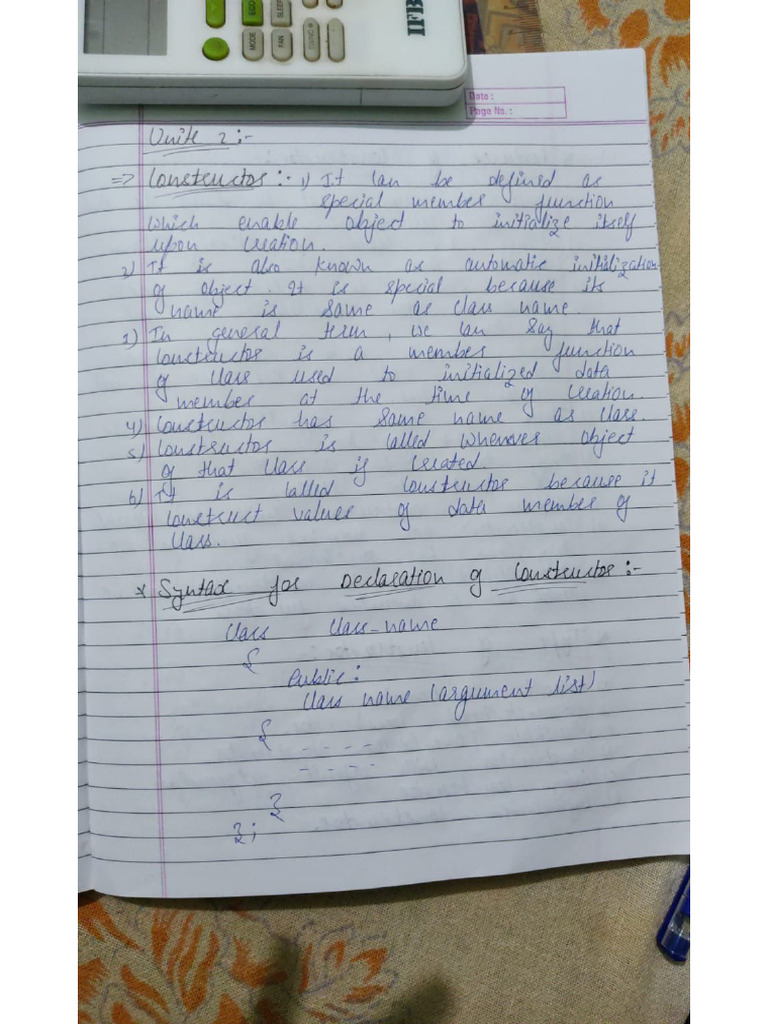 IFB
ECO
SLEEP
MODE
FAN
Date :
Page No. :
Unit 2:-
=> Constructor:- 1) It can be defined as
special member function
which enable object to initialize itself
upon creation.
2) It is also known as automatic initilization
of object. It is special because its
name is same as class name.
1) In general term, we can say that
constructor is a member function
of class used to initialized data
member at the time of creation.
4) Constructor has same name as class.
5) Constructor is called whenever object
of that class is created.
6) It is called constructor because it
construct values of data member of
class.
* Syntax for Declaration of constructor:-
class class-name
{
public:
class name (argument list)
{
- - - -
- - - -
}
};